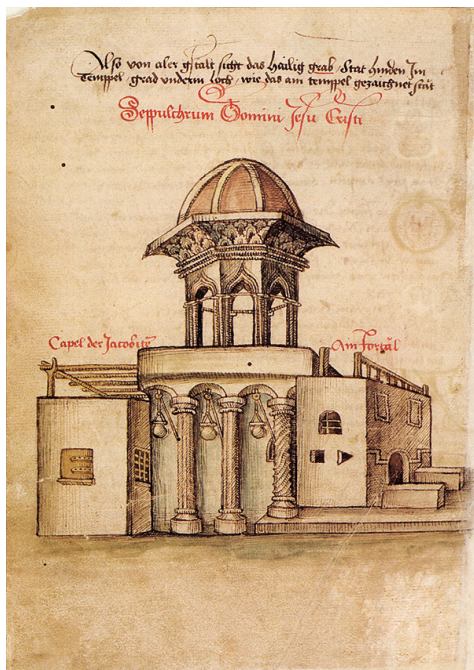 Also von aler gstalt sicht das heilig grab / Stat hinden Im
Temppel grad vnderm loch / wie das am temppel gezaichnet stat
Seppulchrum Domini Jesu Cristi
Capel der Jacobitē
Am Portāl